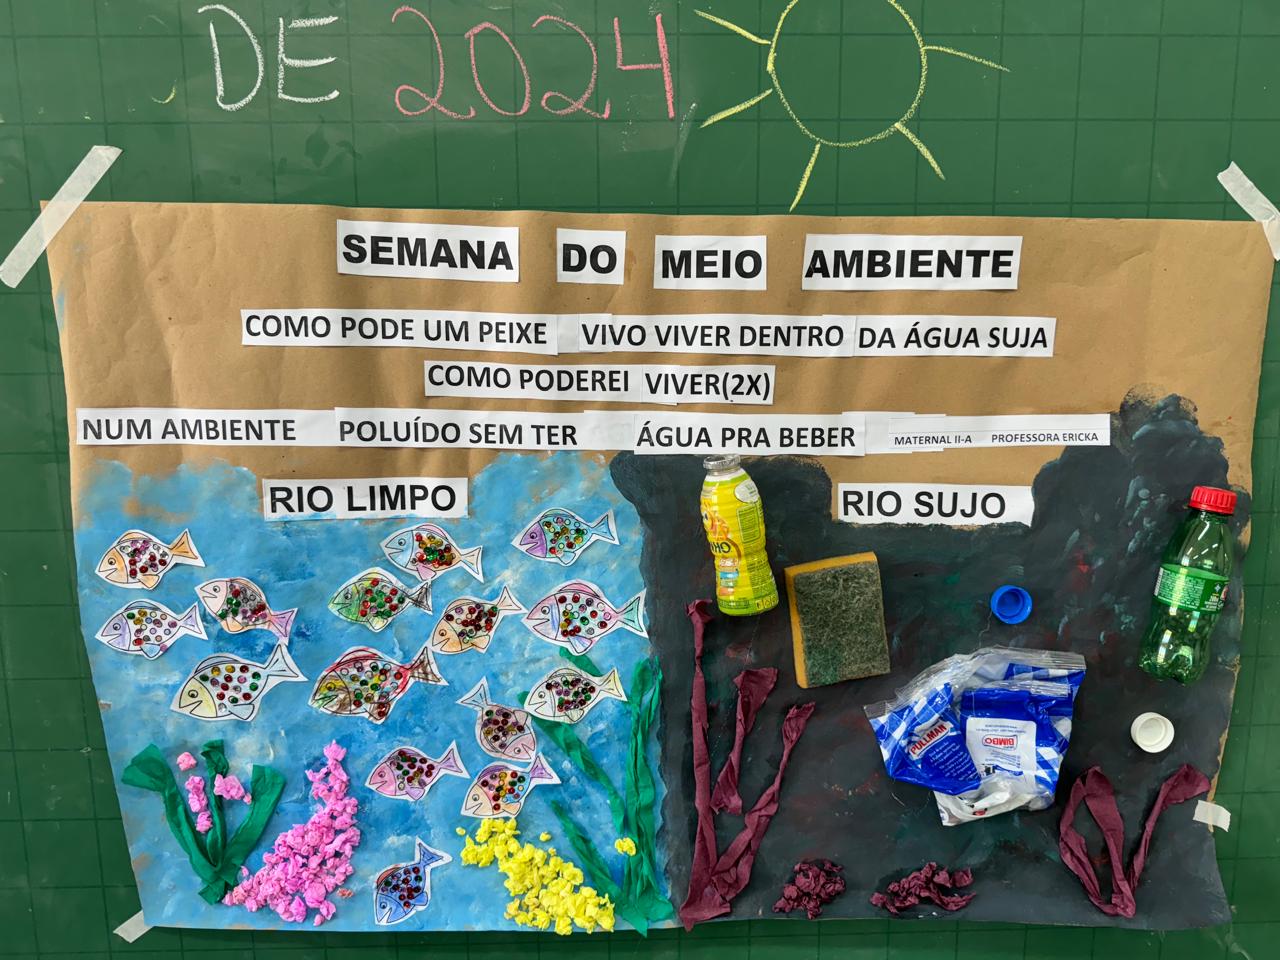 DE 2024
SEMANA DO MEIO AMBIENTE
COMO PODE UM PEIXE VIVO VIVER DENTRO DA ÁGUA SUJA
COMO PODEREI VIVER(2X)
NUM AMBIENTE POLUÍDO SEM TER ÁGUA PRA BEBER MATERNAL II-A PROFESSORA ERICKA
RIO LIMPO
RIO SUJO
PULLMAN
BIMBO